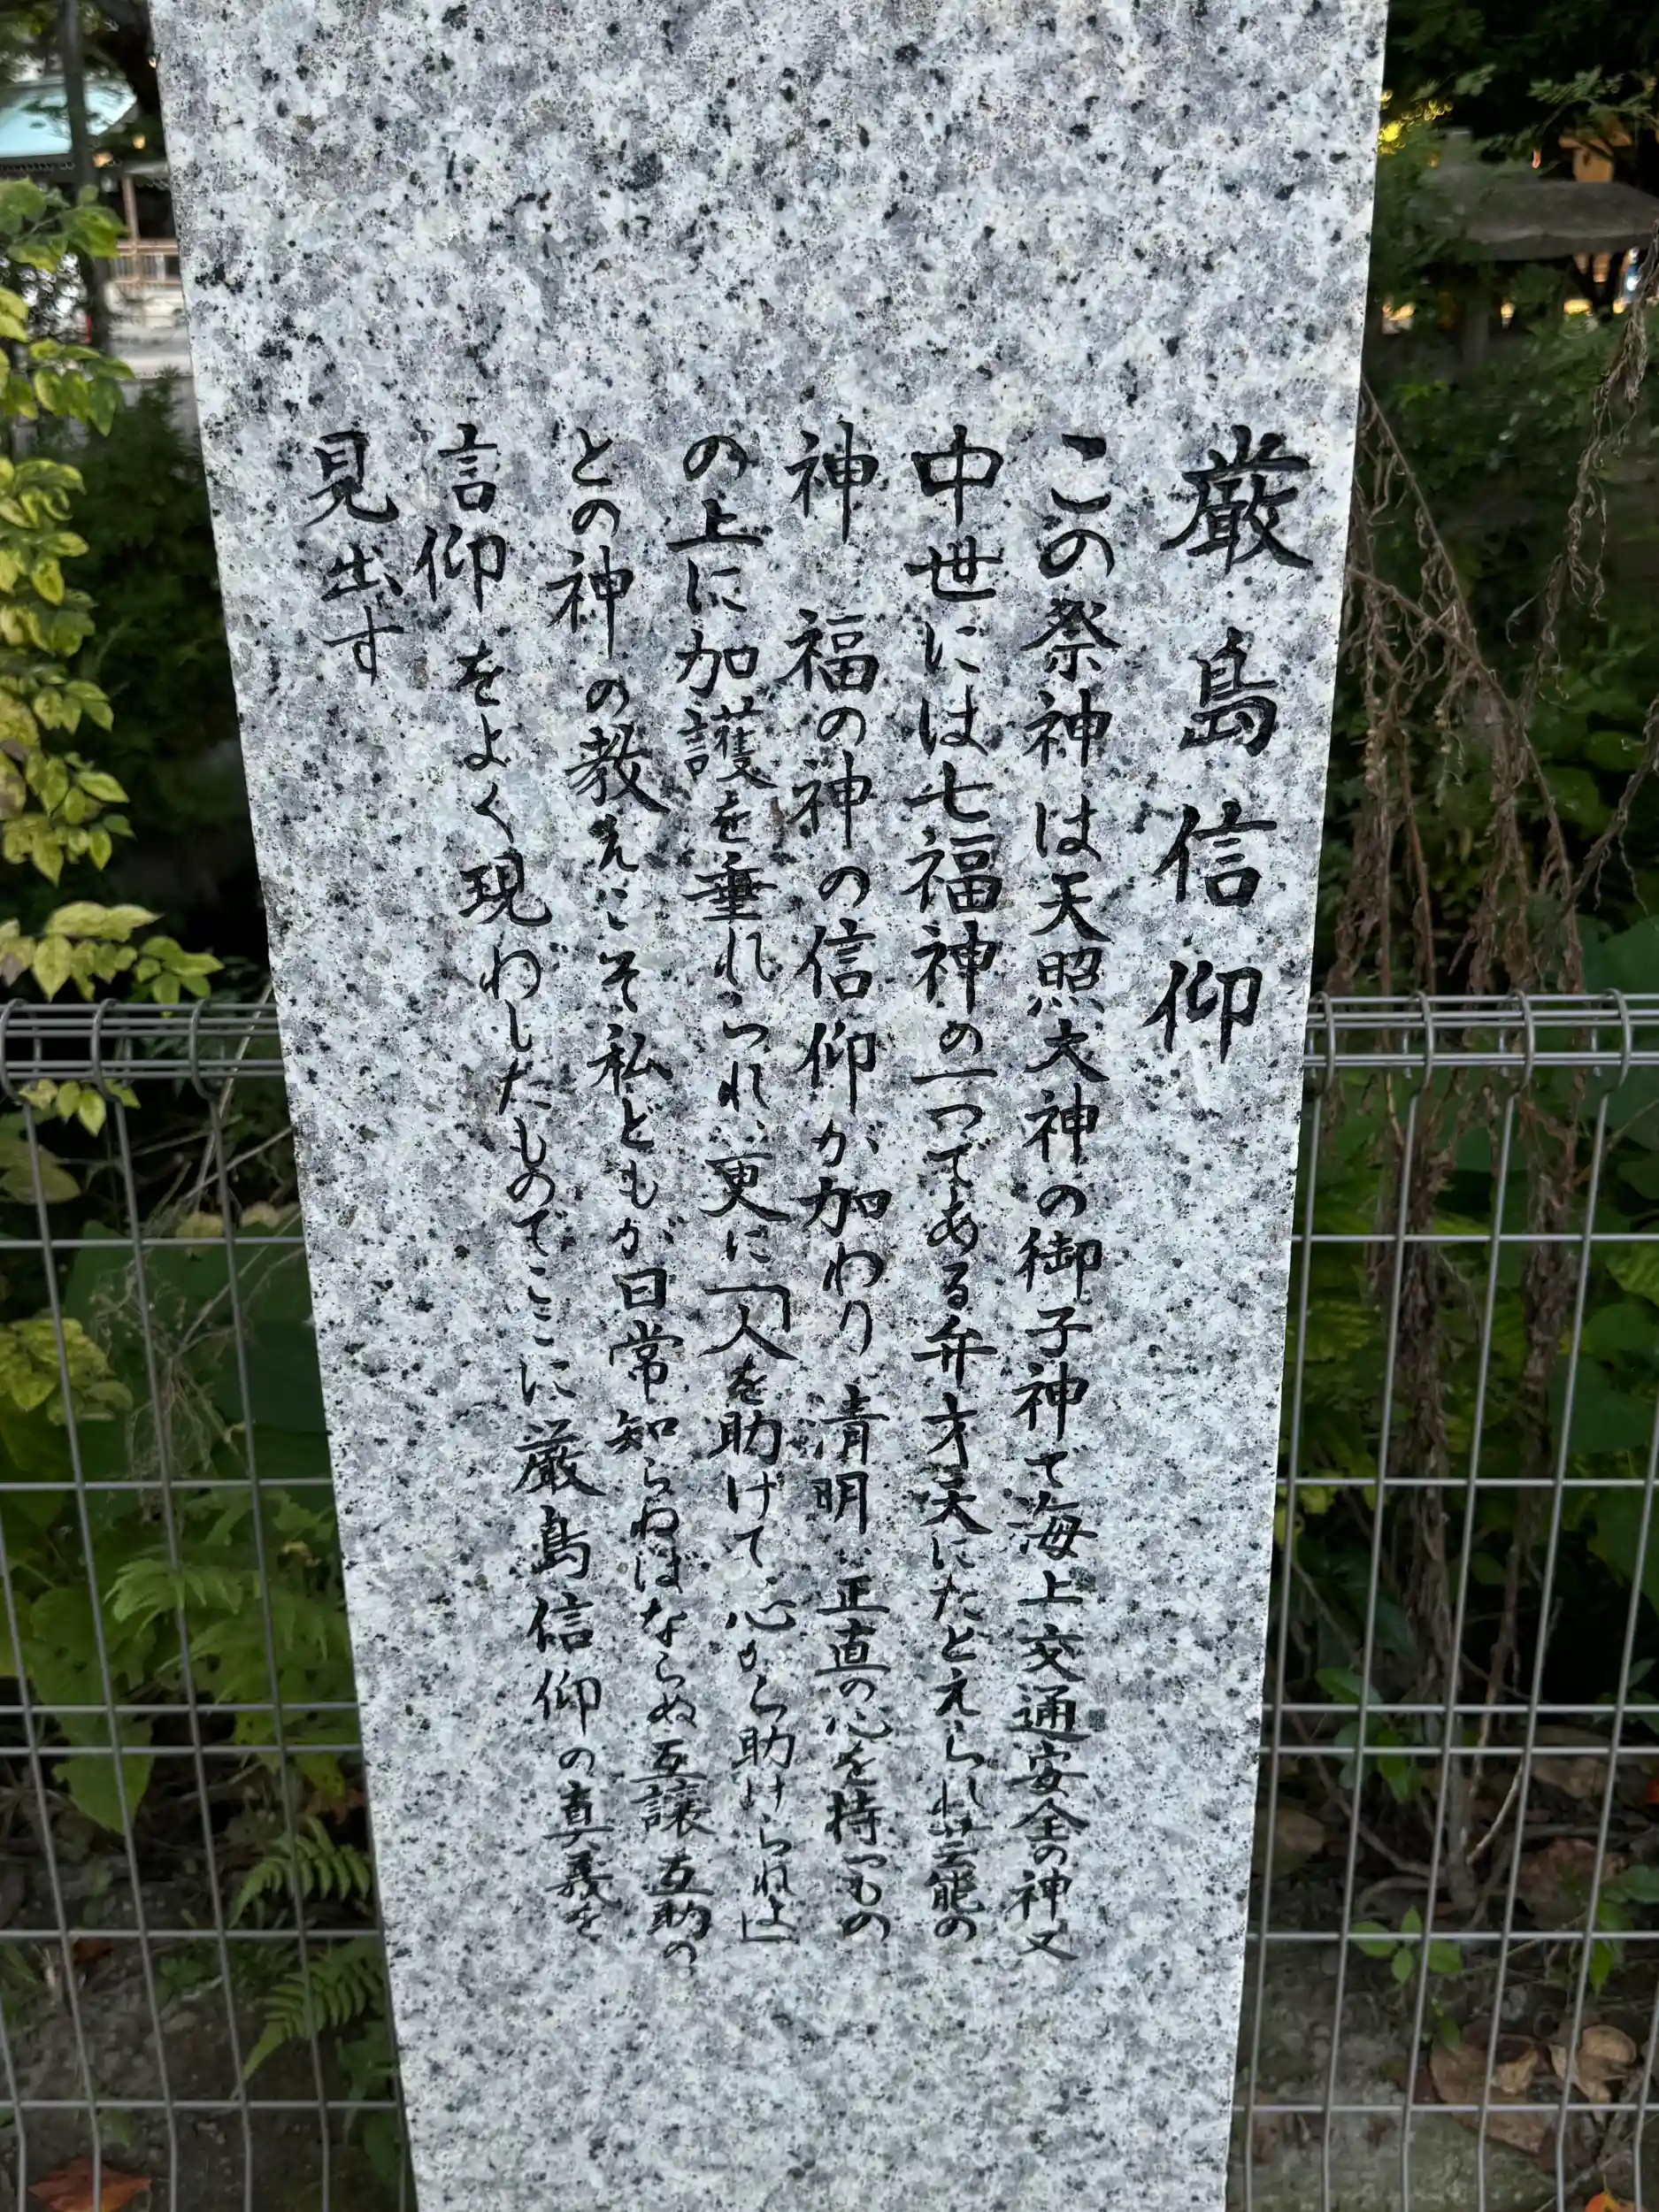 厳島信仰
この祭神は天照大神の御子神で海上交通安全の神又
中世には七福神の一つである弁才天にたとえられ芸能の
神 福の神の信仰が加わり 清明 正直の心を持つもの
の上に加護を垂れつれ、更に「人を助けて心から助けられよ」
との神の教えこそ私どもが日常知らねばならぬ互譲互助の
信仰をよく現わしたものでここに厳島信仰の真義を
見出す